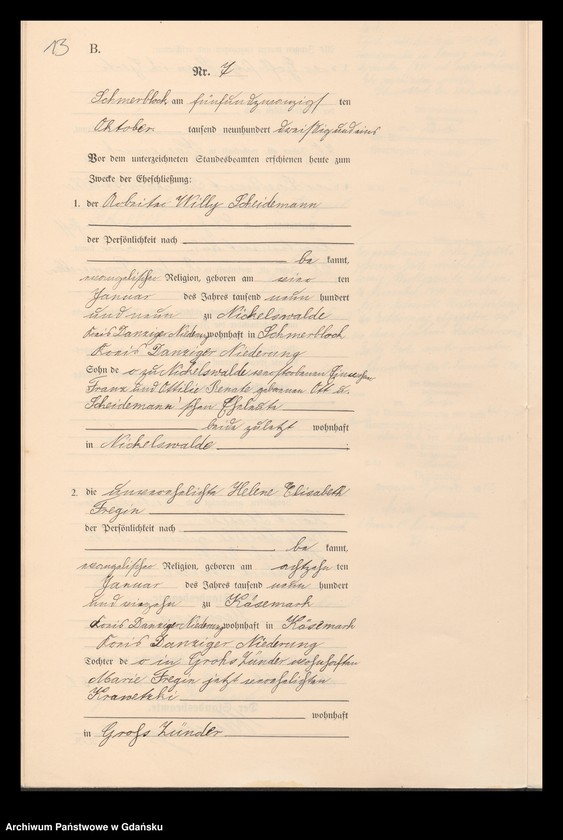 13
B.
Nr. 7
Schmerblock am fünfundzwanzigsten
Oktober tausend neunhundert dreißigundeins
Vor dem unterzeichneten Standesbeamten erschienen heute zum
Zwecke der Eheschließung:
1. der Arbeiter Willy Scheidemann
der Persönlichkeit nach
be kannt,
evangelischer Religion, geboren am vier ten
Januar des Jahres tausend neun hundert
und neun zu Nickelswalde
Kreis Danziger Niederung wohnhaft in Schmerblock
Kreis Danziger Niederung
Sohn de r zu Nickelswalde verstorbenen
Franz und Ottilie Renate geborenen Ott u.
Scheidemann'schen Eheleute
beide zuletzt wohnhaft
in Nickelswalde
2. die unverehelichte Helene Elisabeth
Fregin
der Persönlichkeit nach
be kannt,
evangelischer Religion, geboren am achtzehn ten
Januar des Jahres tausend neun hundert
und vierzehn zu Käsemark
Kreis Danziger Niederung wohnhaft in Käsemark
Kreis Danziger Niederung
Tochter de r in Groß Zünder wohnhaften
Marie Fregin jetzt verehelichten
Krawetzki
wohnhaft
in Groß Zünder
Archiwum Państwowe w Gdańsku